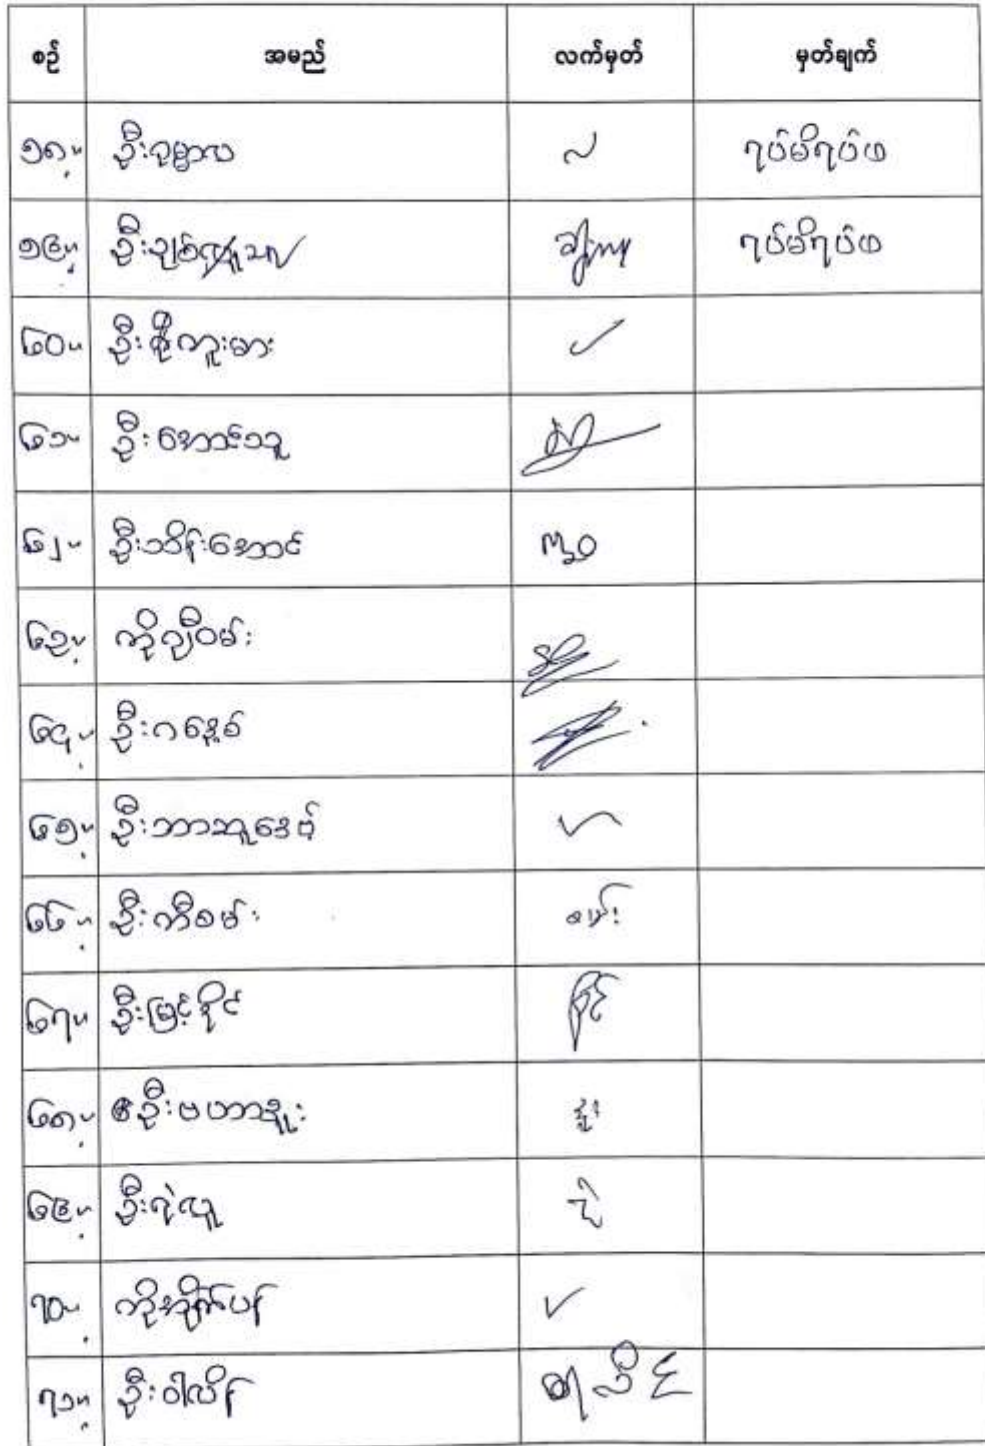 စဉ် အမည် လက်မှတ် မှတ်ချက်
၅၈။ ဦးဂုမ္မာလ ရပ်မိရပ်ဖ
၅၉။ ဦးချစ် ရပ်မိရပ်ဖ
၆၀။ ဦးစိုကူးမား
၆၁။ ဦးအောင်သူ
၆၂။ ဦးသိန်းအောင်
၆၃။ ကိုဂျီဝမ်း
၆၄။ ဦးဂနေ့စ်
၆၅။ ဦးဘာဆူဒေဝ်
၆၆။ ဦးကီစမ်း စမ်း
၆၇။ ဦးမြင့်နိုင်
၆၈။ ဦးဗဟာဒူး ဒူး
၆၉။ ဦးရဲလှူ
၇၀။ ကိုအိုက်ပန်
၇၁။ ဦးဝါလိန်